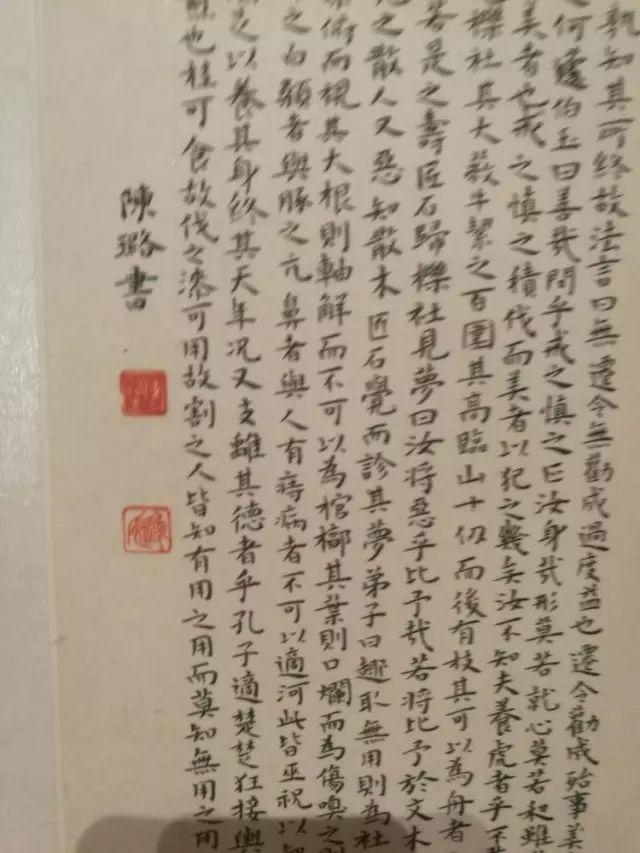 孰知其可終故法言曰無遷令無勸成過度益也遷令勸成殆事美
之何蘧伯玉曰善哉問乎戒之慎之正汝身哉形莫若就心莫若和雖
美者也戒之慎之積伐而美者以犯之幾矣汝不知夫養虎者乎不
櫟社其大蔽牛絜之百圍其高臨山十仞而後有枝其可以為舟者
若是之壽匠石歸櫟社見夢曰汝將惡乎比予哉若將比予於文木
之散人又惡知散木匠石覺而診其夢弟子曰趣取無用則為社
俯而視其大根則軸解而不可以為棺槨其葉則口爛而為傷嗅之則
之白顙者與豚之亢鼻者與人有痔病者不可以適河此皆巫祝以知
之以養其身終其天年况又支離其德者乎孔子適楚楚狂接輿
也桂可食故伐之漆可用故割之人皆知有用之用而莫知無用之用
陳璐書